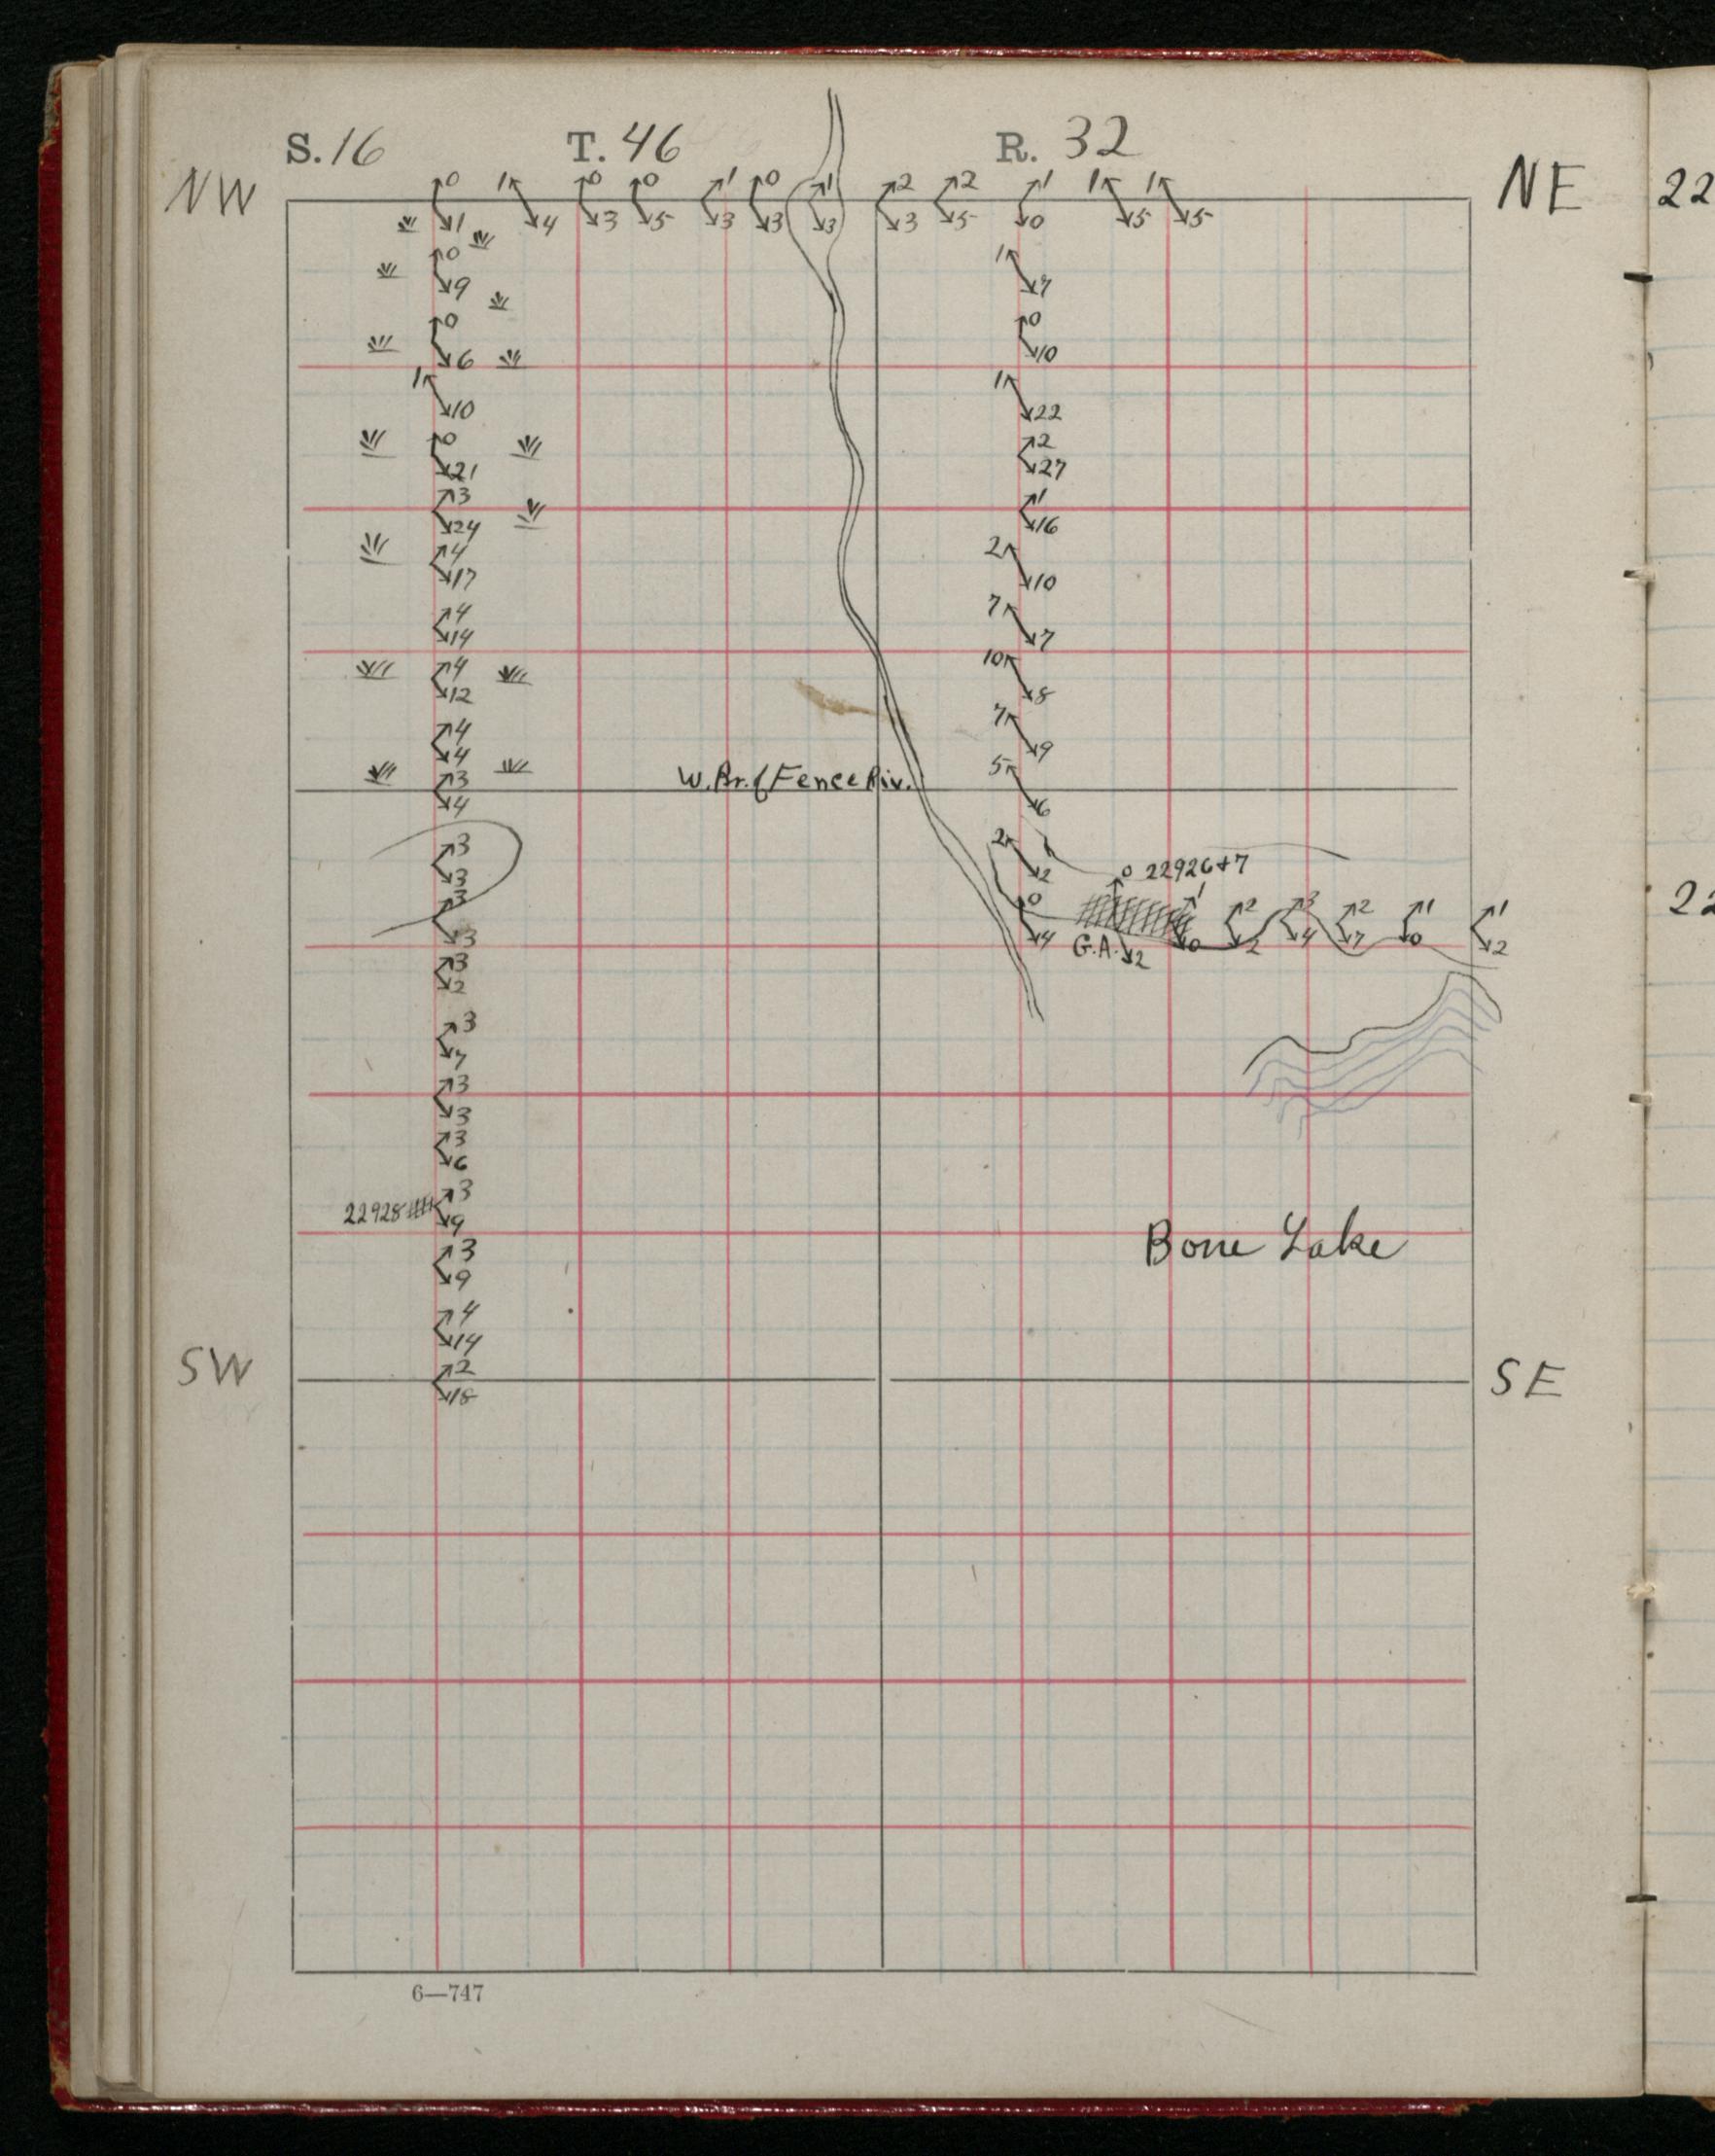 S. 16 T. 46 R. 32
NW NE 22
0 1 0 0 1 0 1 2 2 1 1 1
1 4 3 5 3 3 3 3 5 0 5 5
0 1
9 7
0 0
6 10
1 1
10 22
0 2
21 27
3 1
24 16
4 2
17 10
4 7
14 7
4 10
12 8
4 7
4 9
3 W. Br. of Fence Riv. 5
4 6
3 2
3 2
0 22926+7
3 0 1 2 3 2 1 1 22
3 4 G.A. 2 0 2 4 7 0 2
3
2
3
7
3
3
3
6
22928 3
9
Bone Lake
3
9
4
14
SW 2 SE
18
6—747